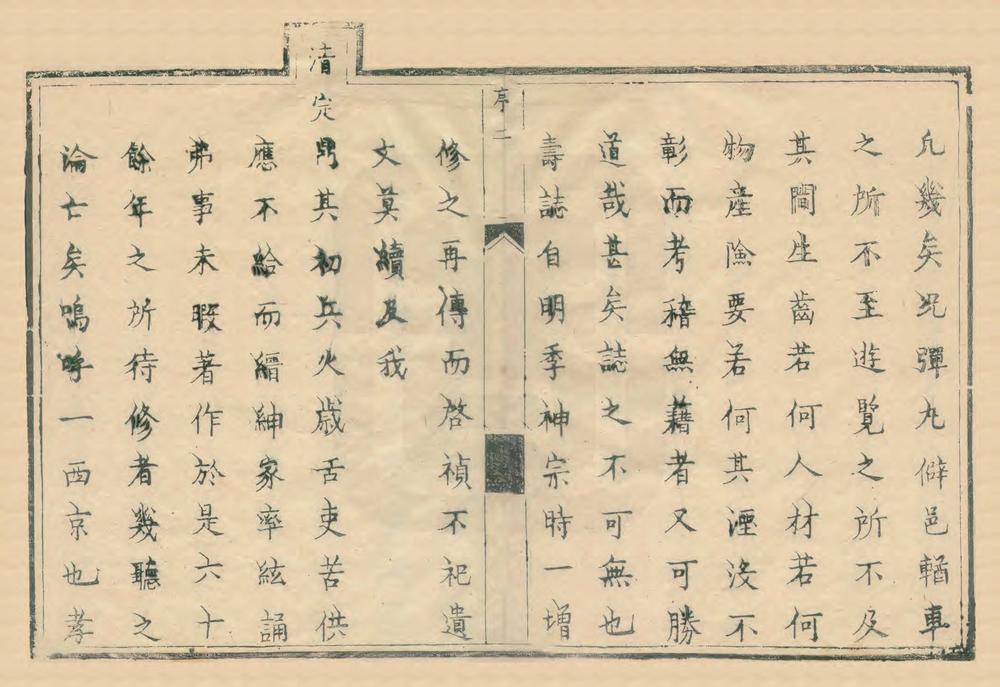 凢幾矣況彈丸僻邑輶車
之所不至遊覽之所不及
其間生齒若何人材若何
物產險要若何其湮沒不
彰而考稽無藉者又可勝
道哉甚矣誌之不可無也
壽誌自明季神宗時一增
序二
修之再傳而啓禎不祀遺
文莫續及我
清定鼎其初兵火歲舌吏苦供
應不給而縉紳家率絃誦
弗事未暇著作於是六十
餘年之所待修者幾聽之
淪亡矣嗚呼一西京也孝